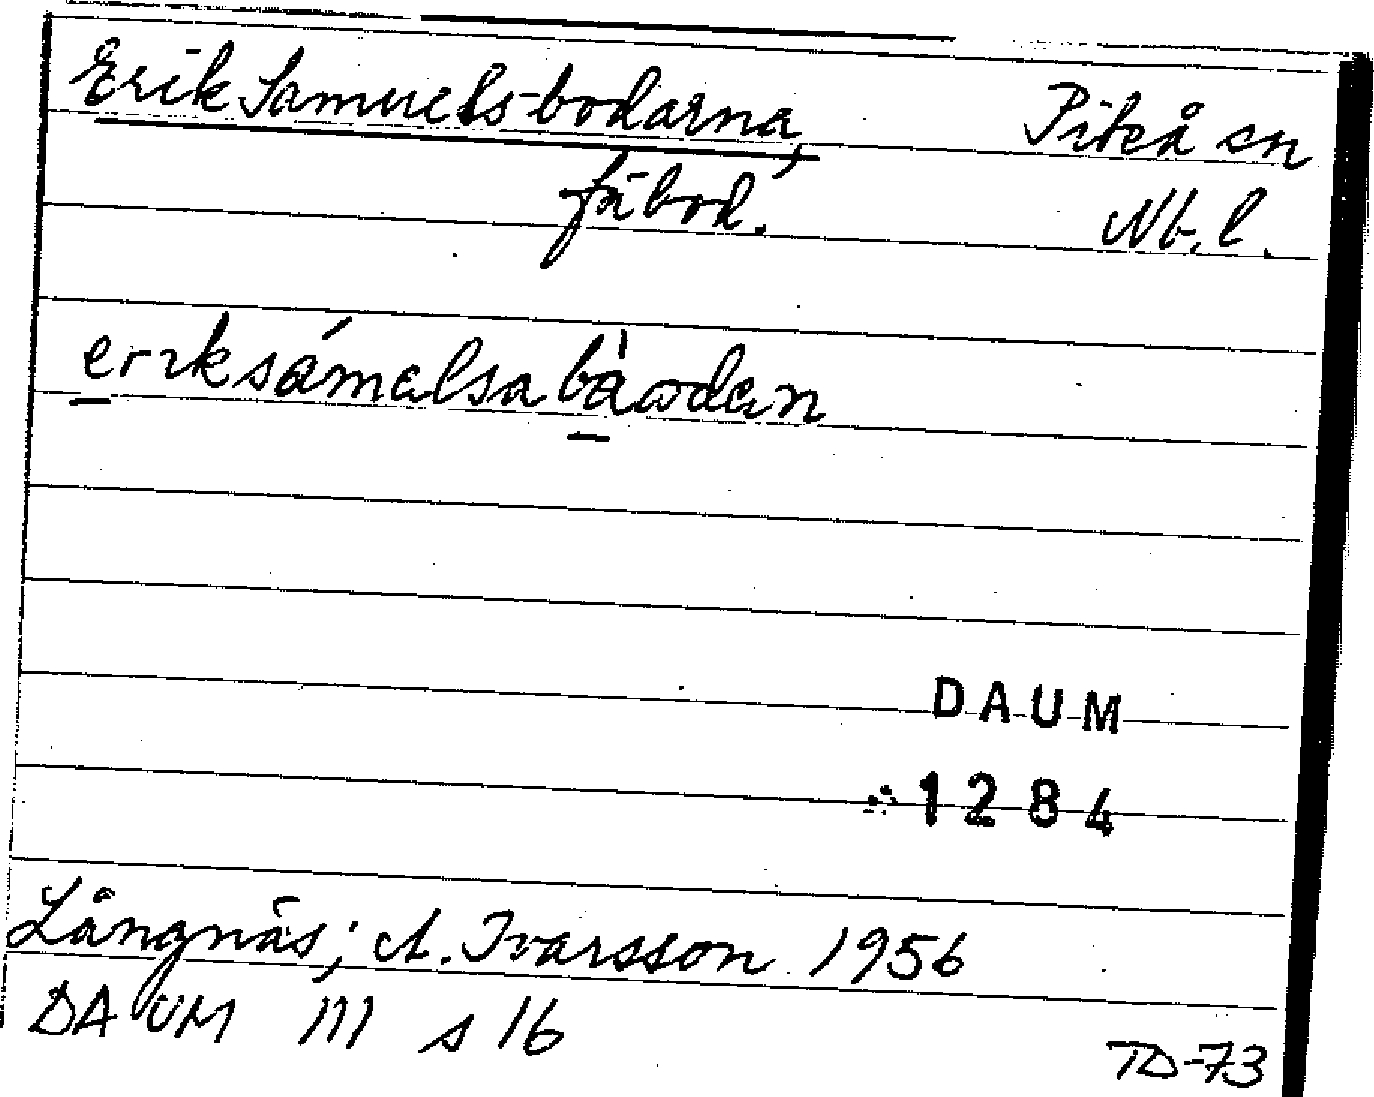 Erik Samuels-bodarna, Piteå sn
fäbod. Nb.l.
eriksámelsabàωdan
DAUM
1284
Långnäs; A. Ivarsson 1956
DAUM 111 s 16
TD-73